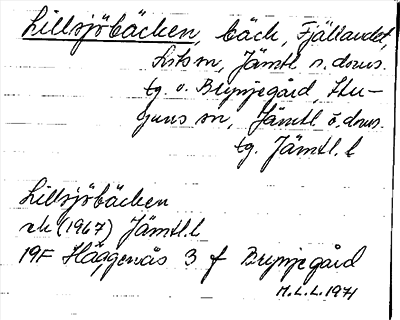 Lillsjöbäcken, bäck, Fjällandet,
Lits sn, Jämtl n. doms.
tg. o. Brynjegård, Stu-
guns sn, Jämtl ö. doms.
tg. Jämtl. l
Lillsjöbäcken
ek (1967) Jämtl. l
19F Häggenås 3 f Brynjegård
M.L.L. 1971